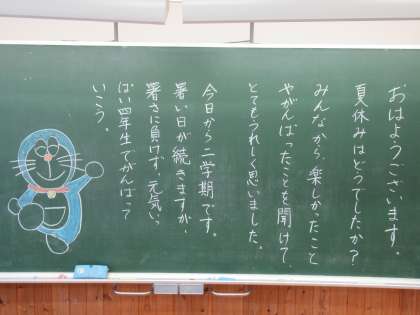 おはようございます。
夏休みはどうでしたか?
みんなから、楽しかったこと
やがんばったことを聞けて、
とてもうれしく思いました。
今日から二学期です。
暑い日が続きますが、
暑さに負けず、元気いっ
ぱい四年生でがんばって
いこう。